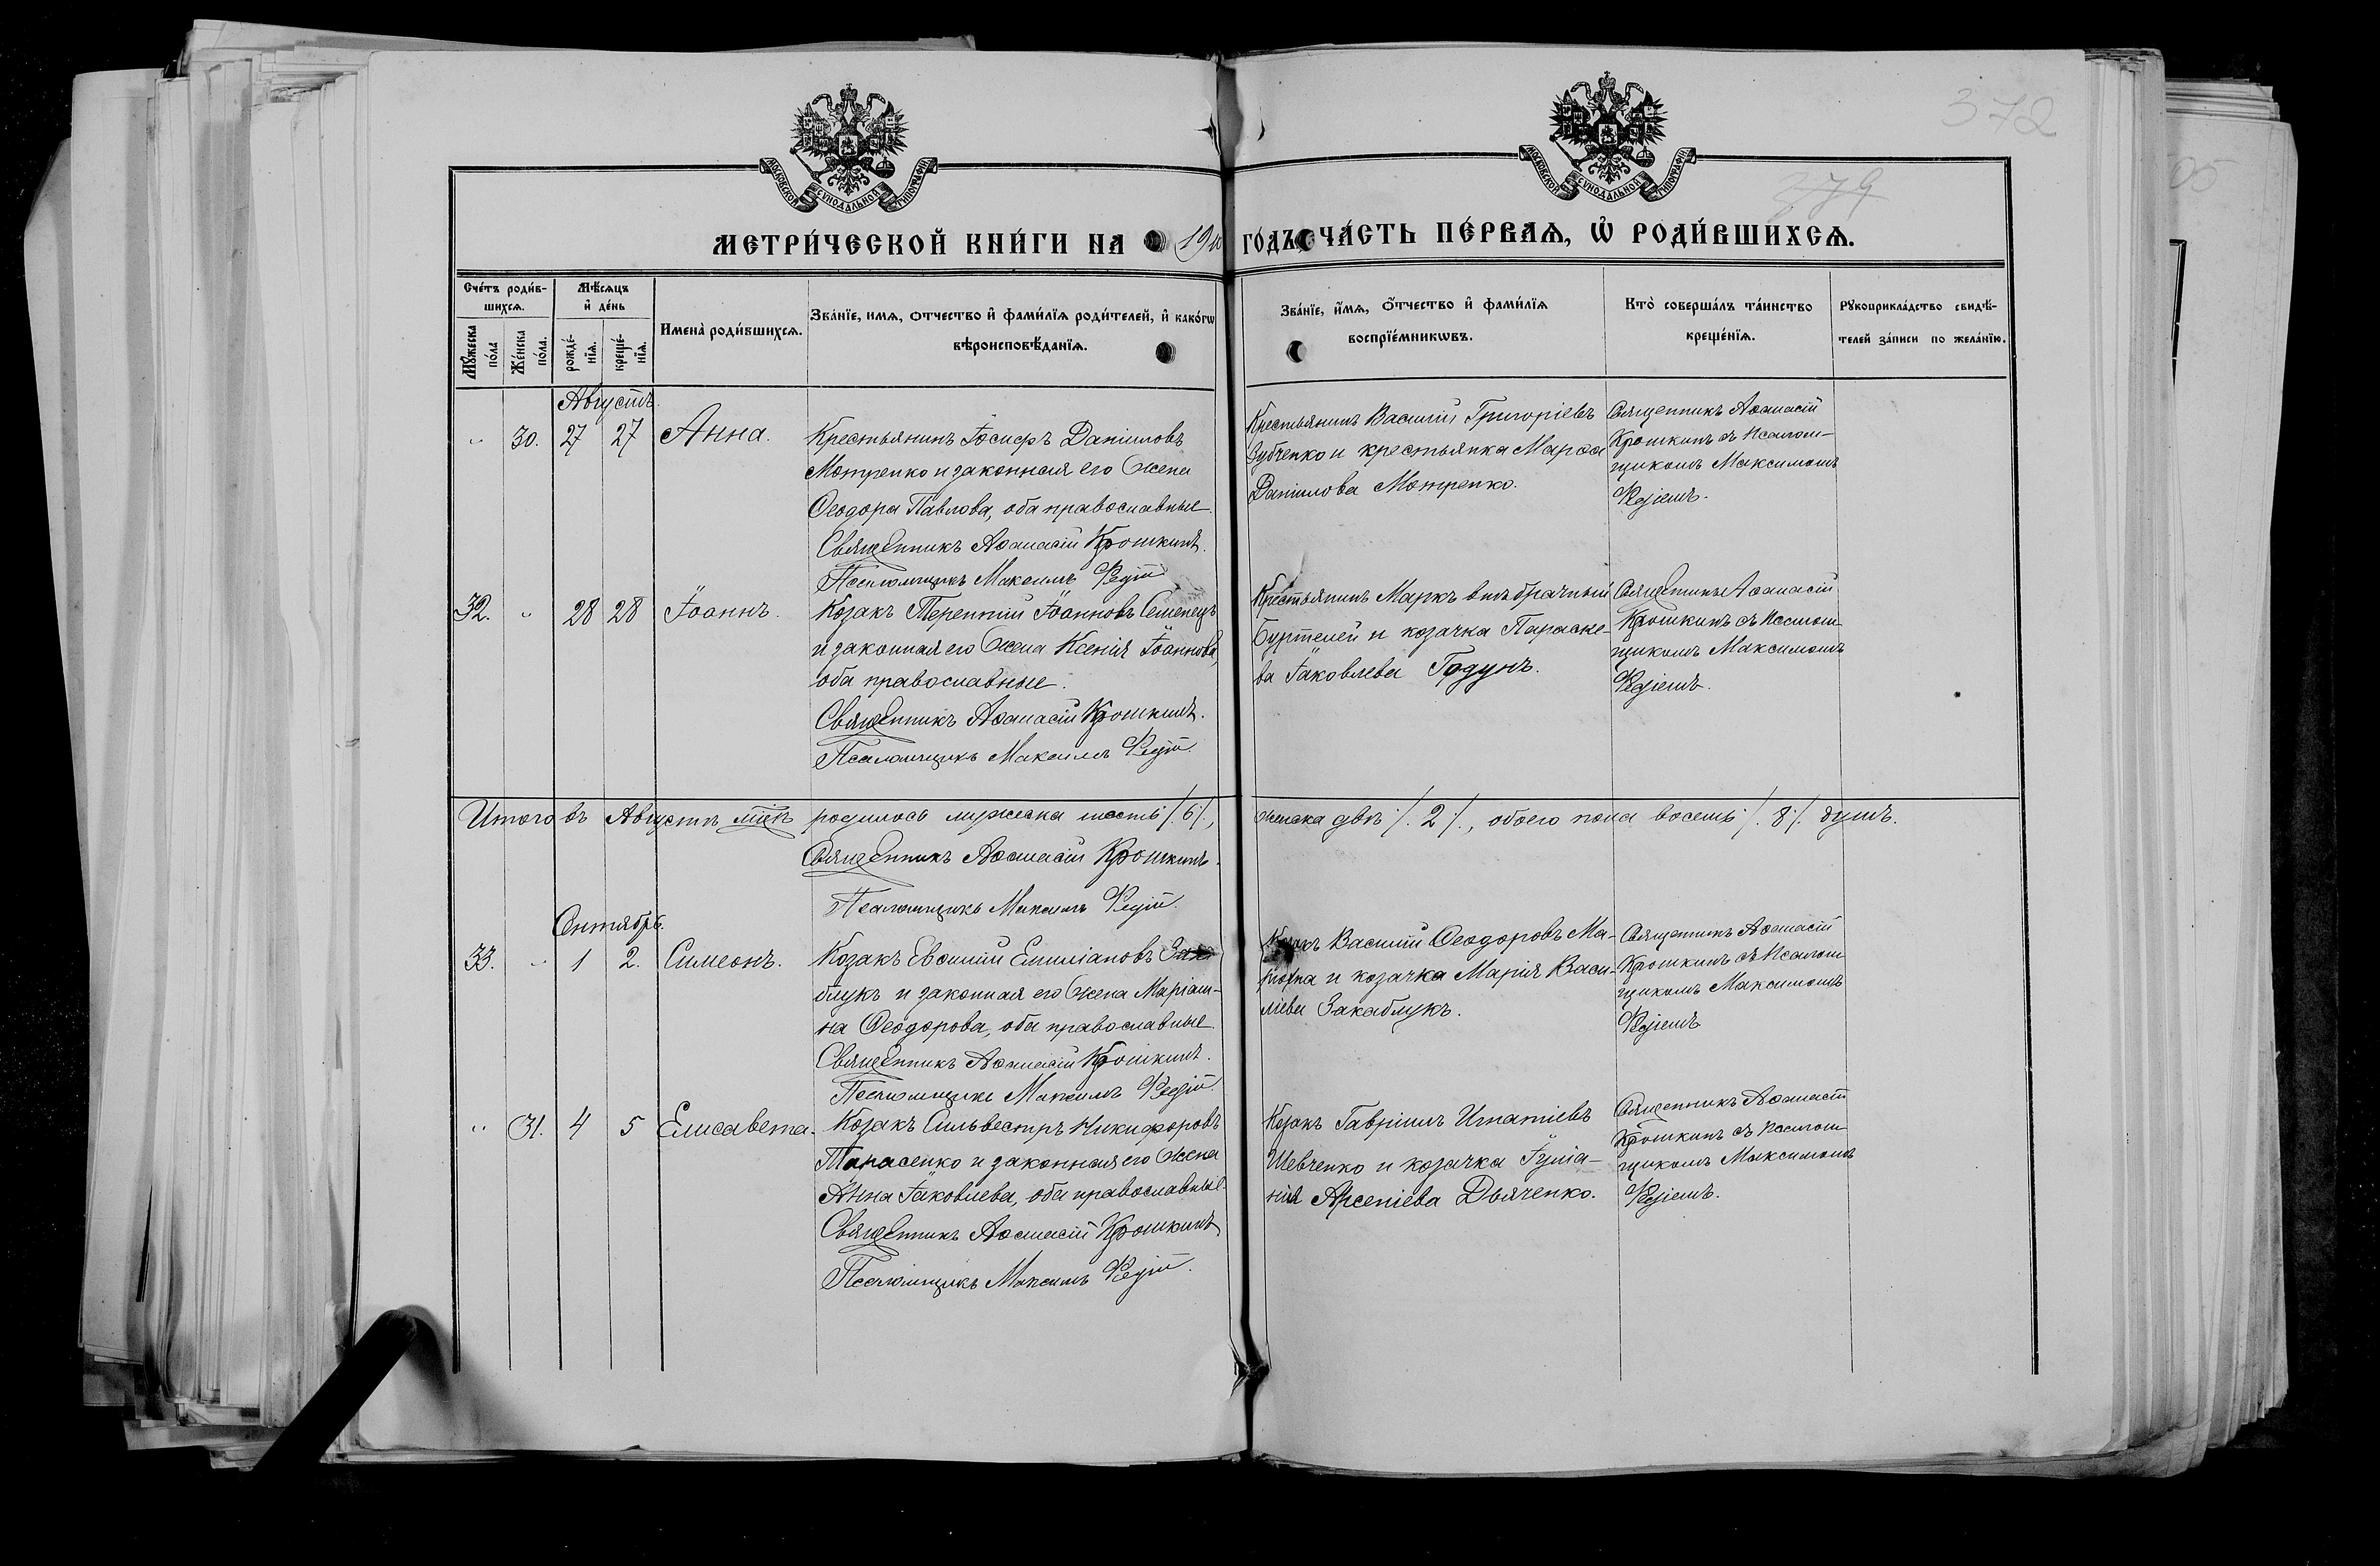 372
379
МОСКОВСКОЙ СѴНОДАЛЬНОЙ ТИПОГРАФІИ
МОСКОВСКОЙ СѴНОДАЛЬНОЙ ТИПОГРАФІИ
МЕТРИ́ЧЕСКОЙ КНИ́ГИ НА 19 ГО́ДЪ ЧА́СТЬ ПЕ́РВАѦ, Ѡ҆ РОДИ́ВШИХСѦ.
Сче́тъ роди́в-
шихсѧ.
Мꙋ́жеска
по́ла
Же́нска
по́ла.
Мѣ́сѧцъ
и҆ де́нь
рожде́-
нїѧ.
креще́-
нїѧ.
Имена̀ роди́вшихсѧ.
Зва́нїе, имѧ, отчество и҆ фами́лїѧ роди́телей, и҆ како́гѡ
вѣроисповѣ́данїѧ.
Зва́нїе, и҆́мѧ, о҆́тчество и҆ фами́лїѧ
воспрїе́мникѡвъ.
Кто̀ соверша́лъ та́инство
креще́нїѧ.
Рꙋкоприкла́дство свидѣ́-
телей за́писи по жела́нїю.
Августъ.
„ 30. 27 27 Анна.
Крестьянинъ Іосифъ Даніиловъ
Мотренко и законная его жена
Ѳеодора Павлова, оба православные.
Священникъ Аѳанасій Крошкинъ.
Псаломщикъ Максимъ Редій
Крестьянинъ Василій Григоріевъ
Зубченко и крестьянка Марѳа
Даніилова Мотренко.
Священникъ Аѳанасій
Крошкинъ съ псалом-
щикомъ Максимомъ
Редіемъ.
32. „ 28 28 Іоаннъ.
Козакъ Терентій Іоанновъ Семенецъ
и законная его жена Ксенія Іоаннова,
оба православные.
Священникъ Аѳанасій Крошкинъ.
Псаломщикъ Максимъ Редій.
Крестьянинъ Маркъ внѣбрачный
Буртелей и козачка Параске-
ва Іаковлева Годунъ.
Священникъ Аѳанасій
Крошкинъ съ псалом-
щикомъ Максимомъ
Редіемъ.
Итого въ Августѣ м̅ц̅ѣ родилось мужеска шесть /. 6 /., женска двѣ /. 2 /., обоего пола восемь /. 8 /. душъ.
Священникъ Аѳанасій Крошкинъ.
Псаломщикъ Максимъ Редій.
Сентябрь.
33. „ 1 2. Симеонъ.
Козакъ Евѳимій Емиліановъ
блукъ и законная его жена Маріам-
на Ѳеодорова, оба православные.
Священникъ Аѳанасій Крошкинъ.
Псаломщикъ Максимъ Редій.
Козакъ Василій Ѳеодоровъ Ма-
рюхна и козачка Марія Васи-
ліева Закаблукъ.
Священникъ Аѳанасій
Крошкинъ съ псалом-
щикомъ Максимомъ
Редіемъ
„ 31. 4 5 Елисавета.
Козакъ Сильвестръ Никифоровъ
Тарасенко и законная его жена
Анна Іаковлева, оба православные.
Священникъ Аѳанасій Крошкинъ
Псаломщикъ Максимъ Редій.
Козакъ Гавріилъ Игнатіевъ
Шевченко и козачка Іуліа-
нія Арсеніева Дьяченко.
Священникъ Аѳанасій
Крошкинъ съ псалом-
щикомъ Максимомъ
Редіемъ.